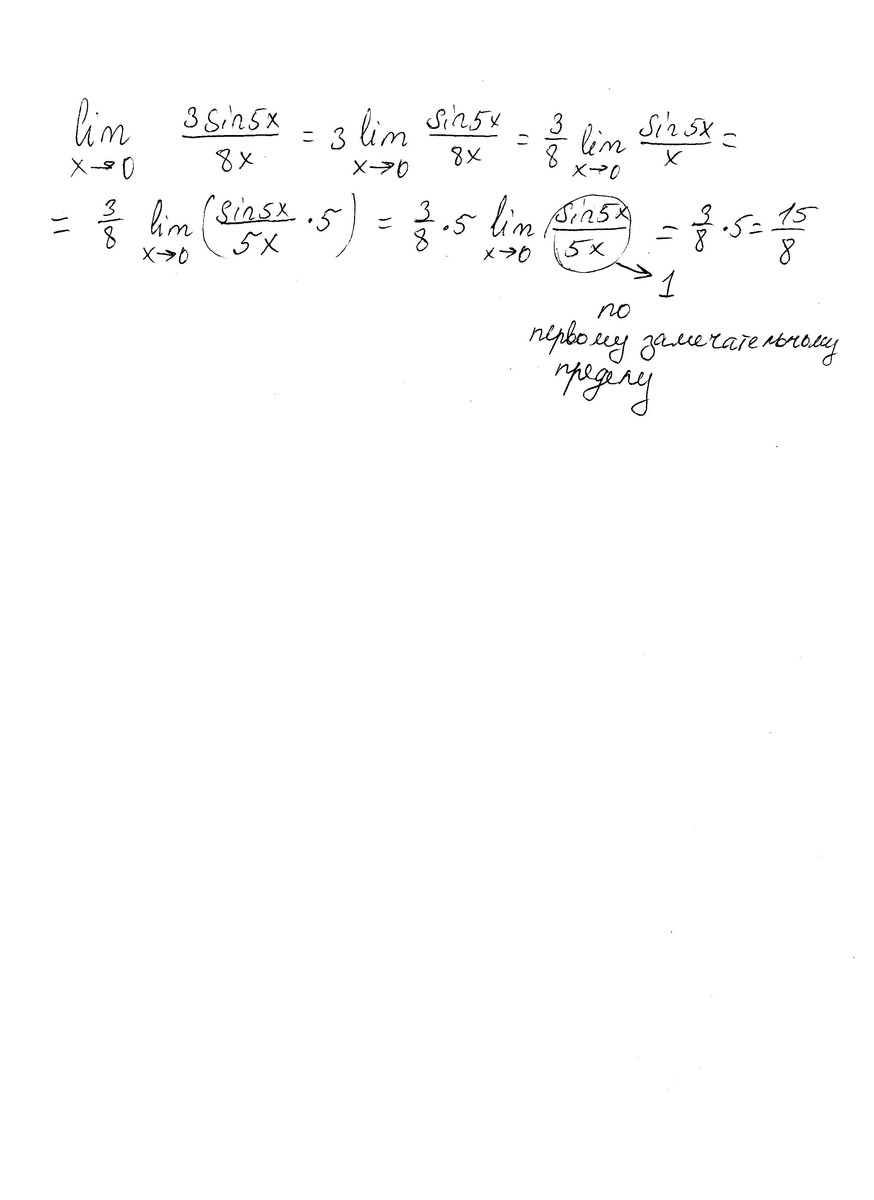 lim x→0 3sin5x/8x = 3 lim x→0 sin5x/8x = 3/8 lim x→0 sin5x/x =
= 3/8 lim x→0 (sin5x/5x · 5) = 3/8 · 5 lim x→0 (sin5x/5x) = 3/8 · 5 = 15/8
→ 1
по
первому замечательному
пределу